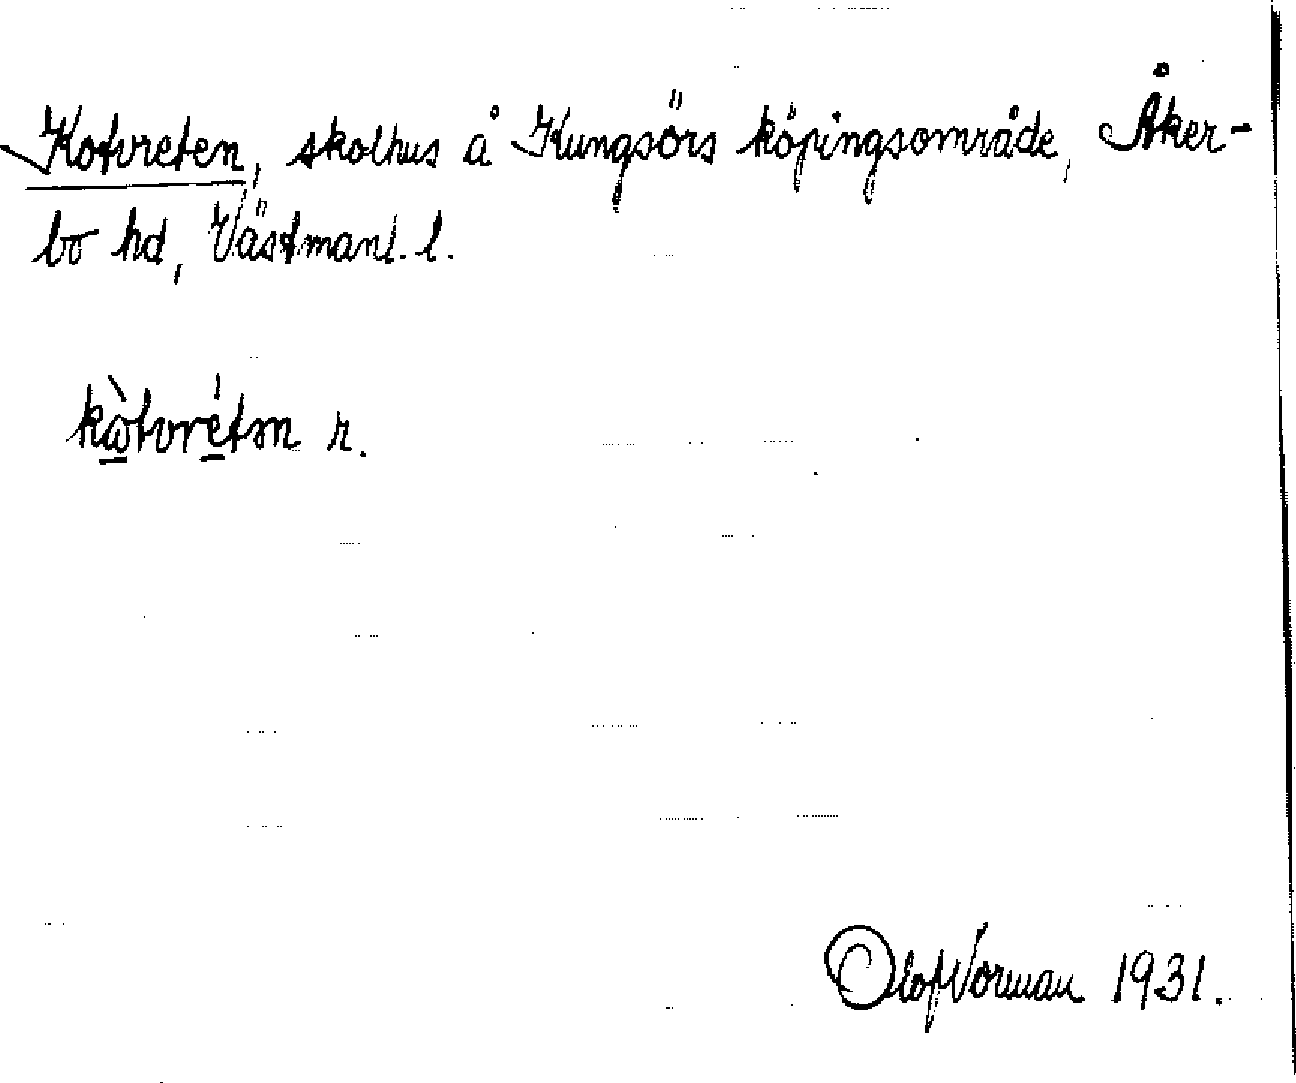 Kotvreten, skolhus å Kungsörs köpingsområde, Åker-
bo hd, Västmanl. l.
kὼ̱tvré̱tsn r.
Olof Norman 1931.